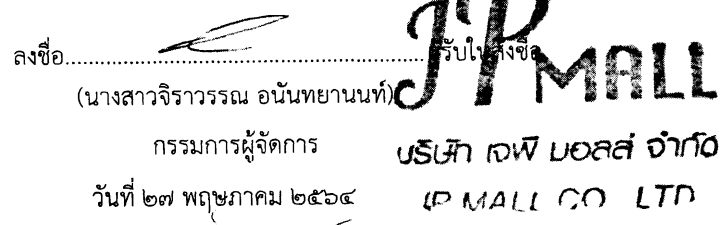 ลงชื่อ.......................................................ผู้รับใบสั่งซื้อ
(นางสาวจิราวรรณ อนันทยานนท์)
กรรมการผู้จัดการ
วันที่ ๒๗ พฤษภาคม ๒๕๖๔
JP MALL
บริษัท เจพี มอลล์ จำกัด
JP MALL CO LTD